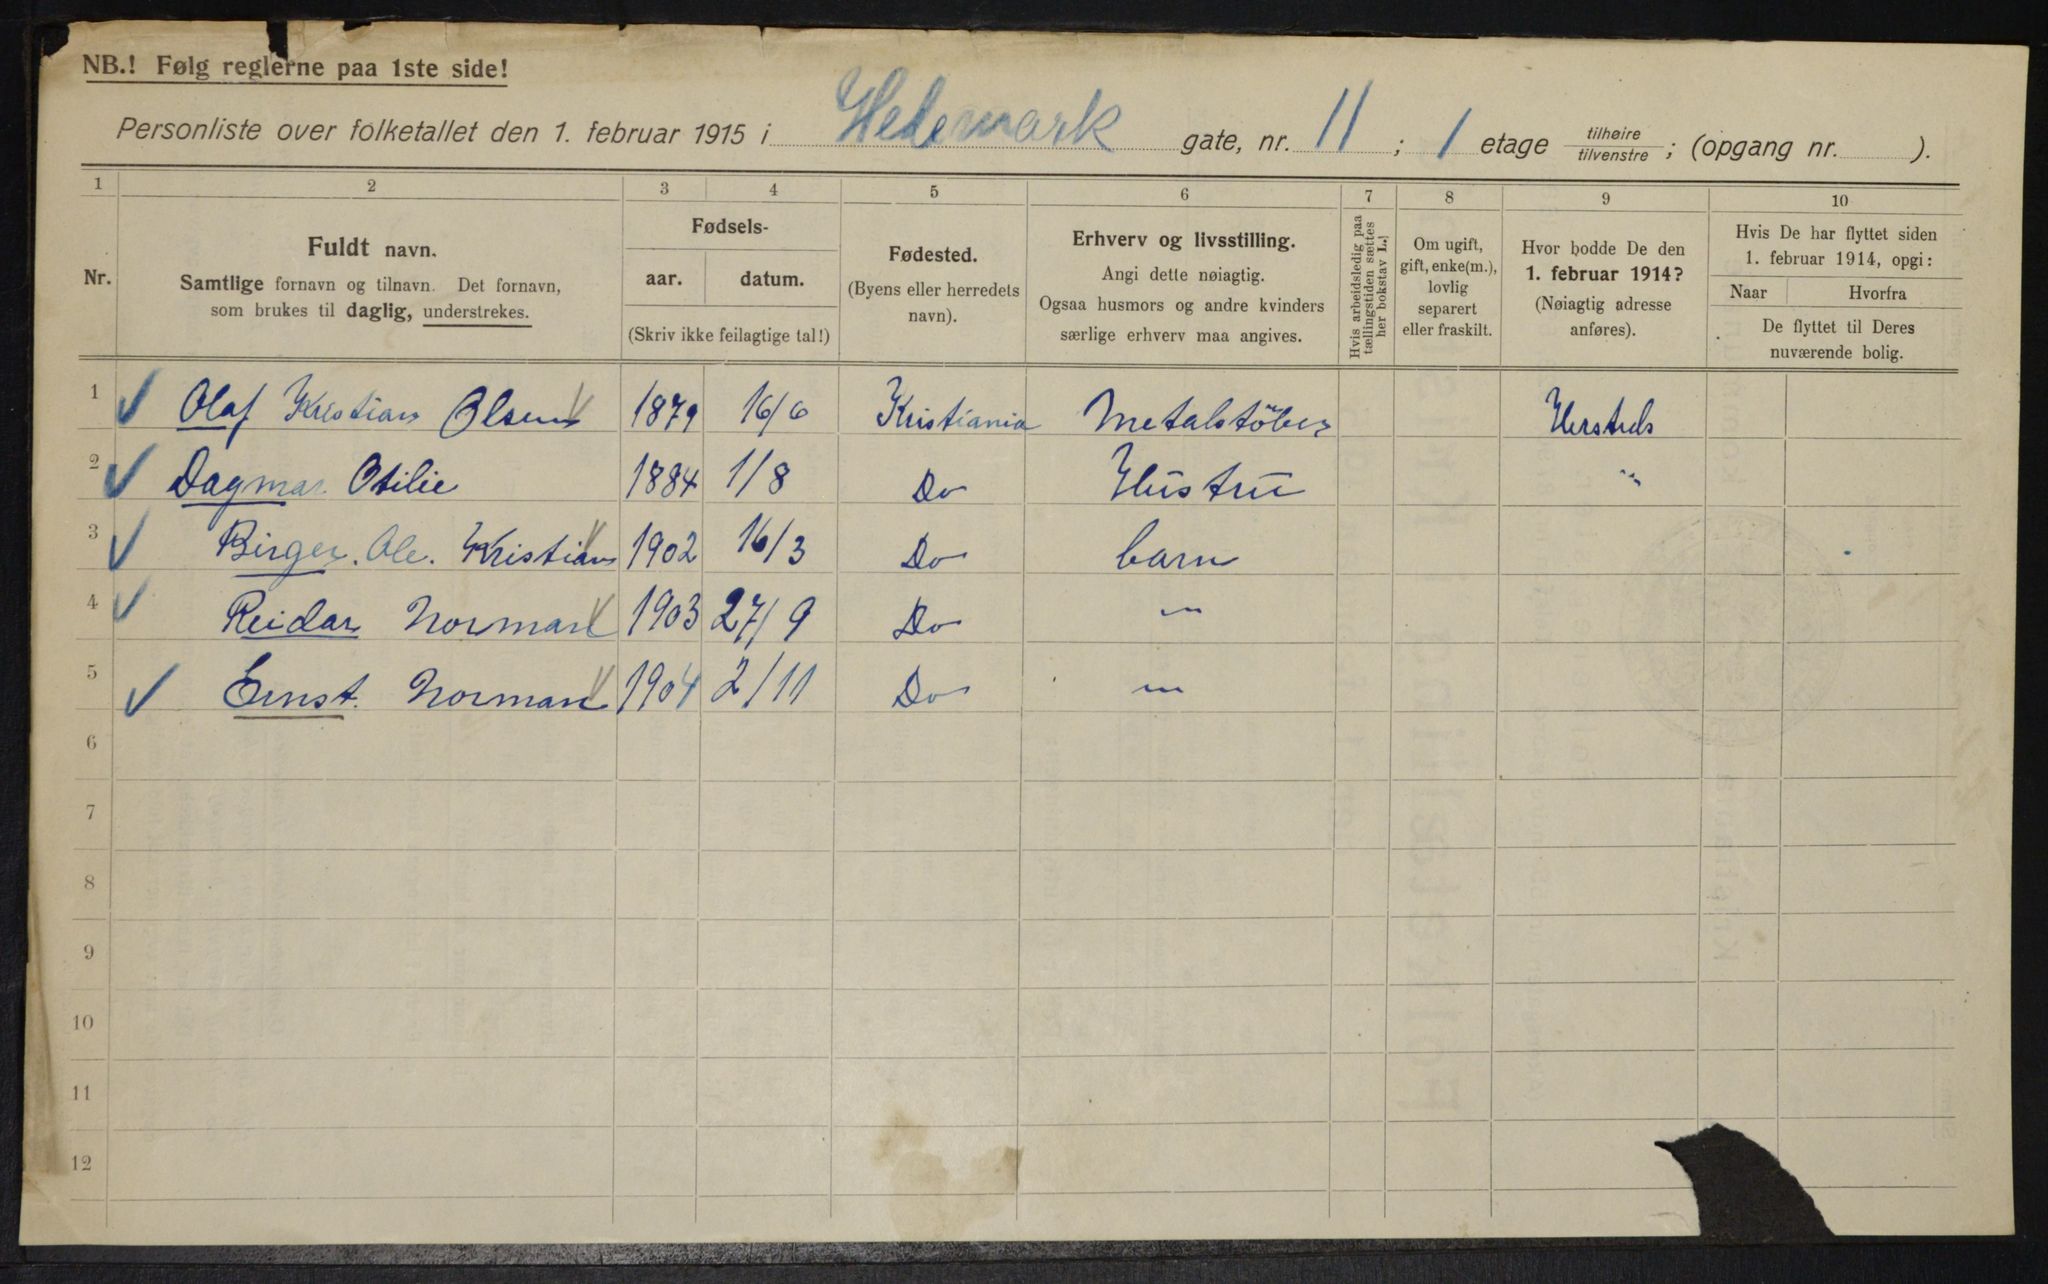 NB.! Følg reglerne paa 1ste side!
Personliste over folketallet den 1. februar 1915 i Hedemark gate, nr. 11 ; 1 etage tilhøire / tilvenstre ; (opgang nr. ).
1 2 3 4 5 6 7 8 9 10
Nr.
Fuldt navn.
Samtlige fornavn og tilnavn. Det fornavn,
som brukes til daglig, understrekes.
Fødsels-
aar. datum.
(Skriv ikke feilagtige tal!)
Fødested.
(Byens eller herredets
navn).
Erhverv og livsstilling.
Angi dette nøiagtig.
Ogsaa husmors og andre kvinders
særlige erhverv maa angives.
Hvis arbeidsledig paa
tællingstiden sættes
her bokstav L.
Om ugift,
gift, enke(m.),
lovlig
separert
eller fraskilt.
Hvor bodde De den
1. februar 1914?
(Nøiagtig adresse
anføres).
Hvis De har flyttet siden
1. februar 1914, opgi:
Naar Hvorfra
De flyttet til Deres
nuværende bolig.
1 Olaf Kristian Olsen 1879 16/6 Kristiania Metalstöber
2 Dagmar Otilie 1884 1/8 Do Hustru "
3 Birger. Ole. Kristian 1902 16/3 Do barn
4 Reidar Norman 1903 27/9 Do "
5 Ernst. Norman 1904 2/11 Do "
6
7
8
9
10
11
12